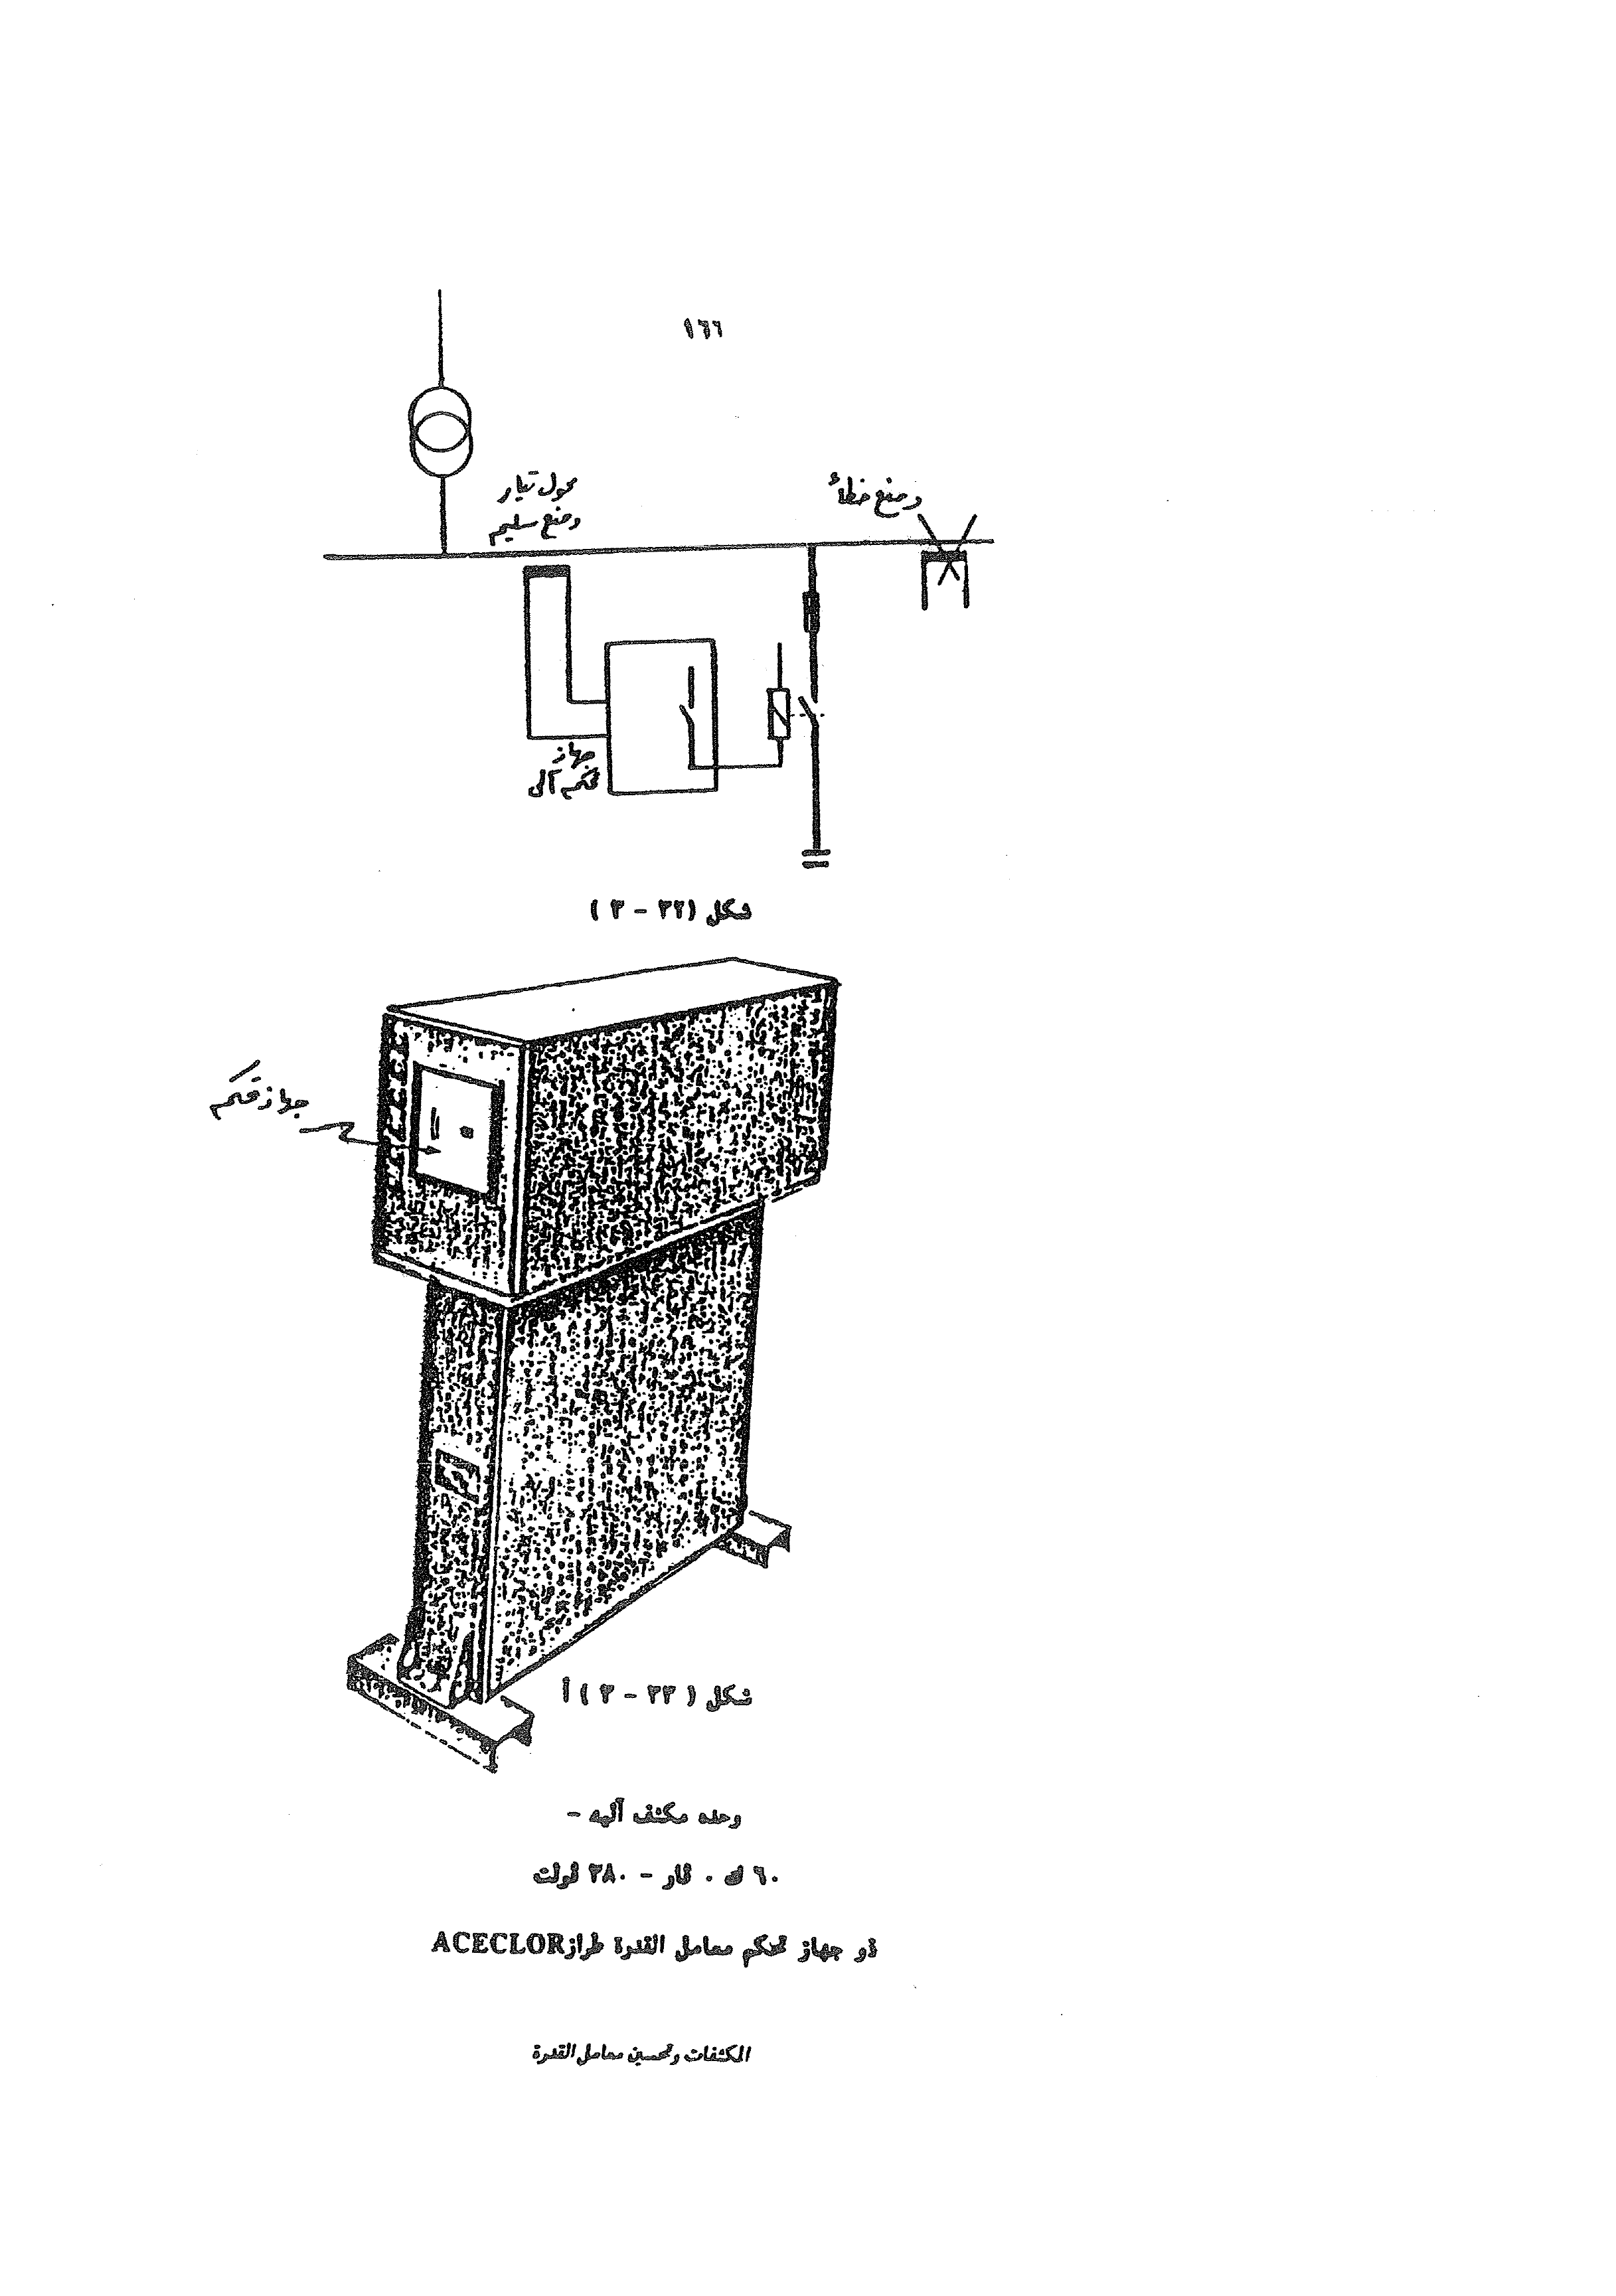 ١٦٦
محول تيار
وضع سليم
وضع خطأ
جهاز
تحكم آلى
شكل (٣٢ – ٣)
جهاز تحكم
شكل (٣٣ – ٣) أ
وحده مكثف آليه –
٦٠ ك . فار – ٣٨٠ فولت
ذو جهاز تحكم معامل القدرة طراز ACECLOR
المكثفات وتحسين معامل القدرة